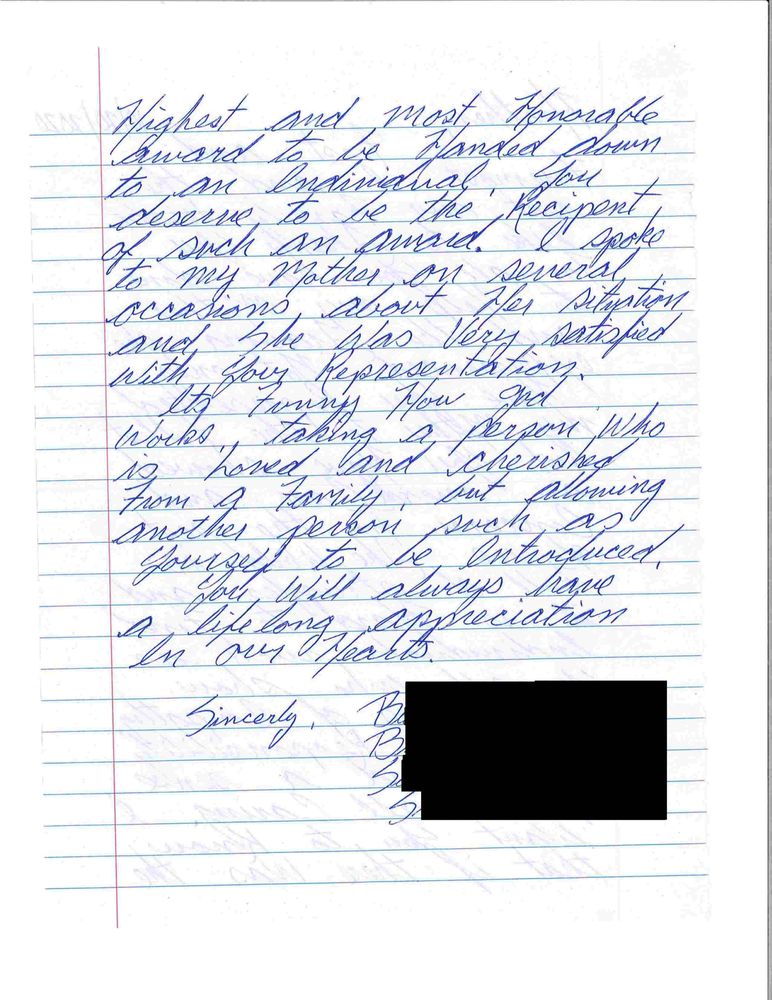 Highest and most Honorable
award to be Handed down
to an Individual. You
deserve to be the Recipent
of such an award. I spoke
to my Mother on several
occasions about Her situation
and She Was Very satisfied
With Your Representation.
Its Funny How God
Works, taking a person Who
is Loved and cherished
From a Family, but allowing
another person such as
Yourself to be Introduced.
You Will always have
a lifelong appreciation
In our Hearts.
Sincerly, B
B
S
S